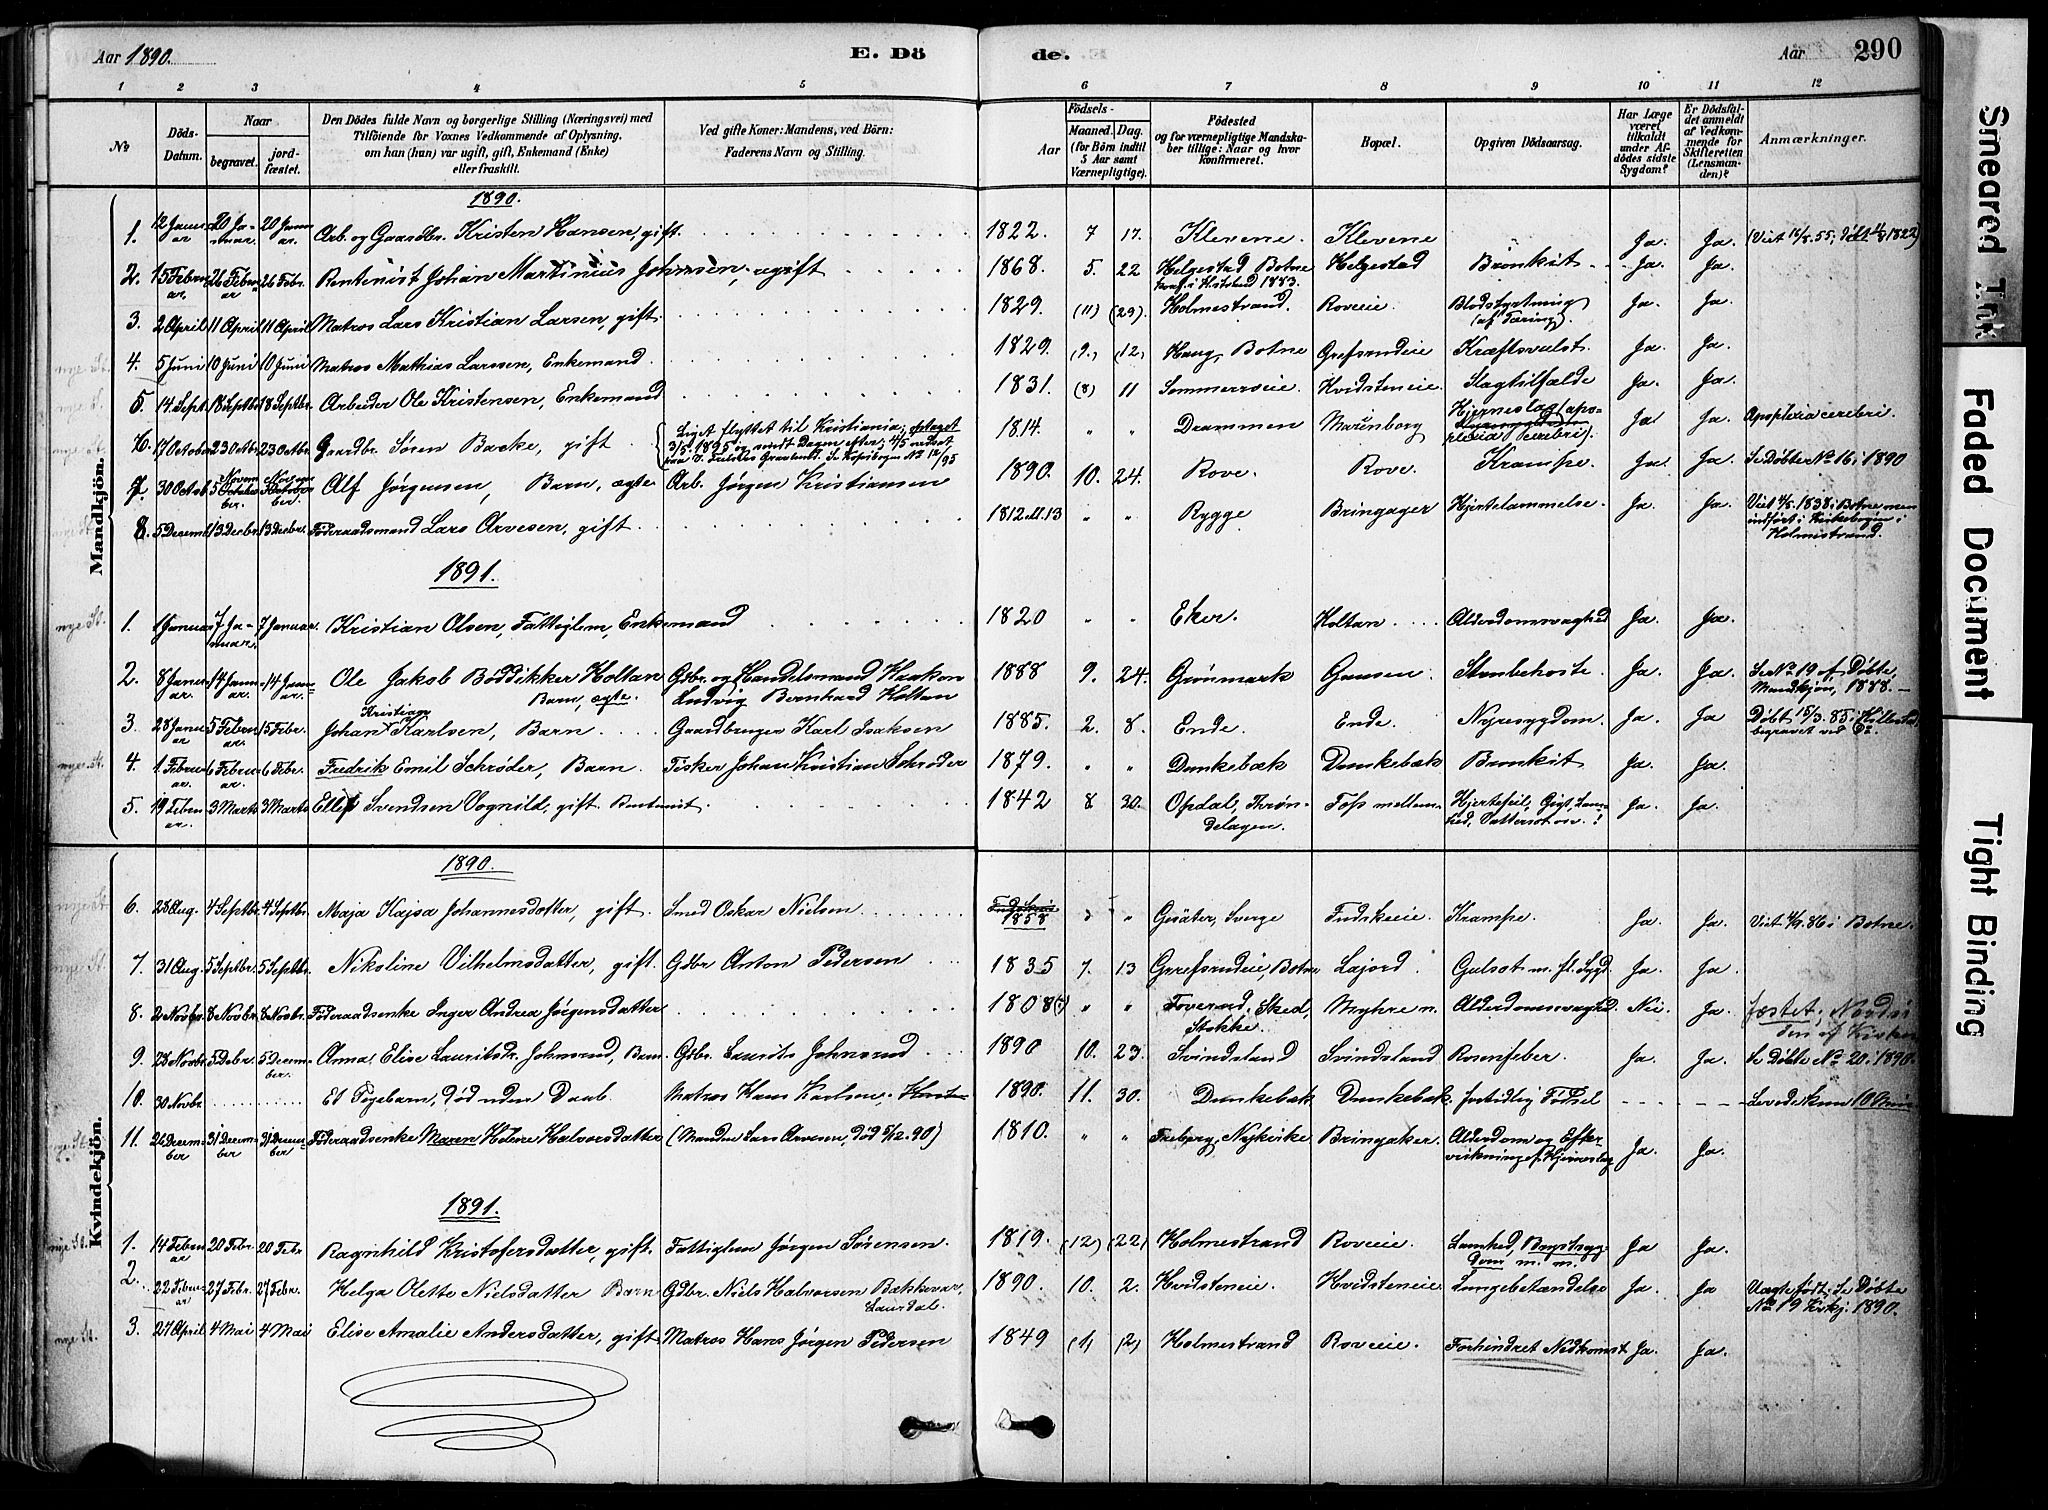 Aar 1890. E. Dö de. Aar 290
1 2 3 4 5 6 7 8 9 10 11 12
No Döds-Datum. Naar begravet. jordfæstet. Den Dödes fulde Navn og borgerlige Stilling (Næringsvei) med Tilföiende for Voxnes Vedkommende af Oplysning, om han (hun) var ugift, gift, Enkemand (Enke) eller fraskilt. Ved gifte Koner: Mandens, ved Börn: Faderens Navn og Stilling. Födsels- Aar Maaned. Dag. (for Börn indtil 5 Aar samt Værnepligtige). Födested og for værnepligtige Mandskaber tillige: Naar og hvor Konfirmeret. Bopæl. Opgiven Dödsaarsag. Har Læge været tilkaldt under Afdödes sidste Sygdom? Er Dödsfaldet anmeldt af Vedkommende for Skifteretten (Lensmanden)? Anmærkninger.
Mandkjön.
1890.
1. 12 Januar 20 Januar 20 Januar Arb. og Gaardbr. Kristen Hansen, gift. 1822. 7 17. Klevene. Klevene Ja. Ja.
2. 15 Februar 26 Februar 26 Febr. Rentenist Johan Martinius Johnsen, ugift 1868. 5. 22 Helgestad Botne Helgestad Bronkit Ja. Ja.
3. 2 April 11 April 11 April Matros Lars Kristian Larsen, gift. 1829. (11) (29) Holmestrand. Roveie Blodstyrtning (af Tæring). Ja. Ja.
4. 5 Juni 10 Juni 10 Juni Matros Mathias Larssen, Enkemand. 1829. (9.) (12) Haug, Botne Grefsrudeie Kræftsvulst. Ja. Ja.
5. 14 Sept. 18 Septbr. 18 Septbr. Arbeider Ole Kristensen, Enkemand 1831. (8) 11 Sommerroeie. Kvidsteneie. Slagtilfælde Ja. Ja.
6. 17 October 23 Octbr. 23 Octbr. Gaardbr. Sören Backe, gift Liget flyttet til Kristiania; optaget 3/5 1895 og sendt Dagen efter; 4/5 nedsat paa V. Frelsers Gravlund. Se Kopibogen No 12/95 1814. " " Drammen Marienborg Hjerneslag (apoplexia cerebri). Ja Ja. Apoplexia cerebri.
7. 30 Octob. 5 November 5 November Alf Jørgensen, Barn, ægte Arb. Jørgen Kristiansen 1890. 10. 24. Rove. Rove. Krampe. Ja. Ja. Se Døbte No 16 i 1890
8. 5 Decemb. 13 Decbr. 13 Decbr. Föderaadsmand Lars Arvesen, gift. 1812 el. 13 " " Rygge Bringager Hjertelammelse. Ja. Ja. Viet 4/5. 1838 i Botne men indført i Kirkebogen i Holmestrand.
1891.
1. 1 Januar 7 Januar 7 Januar. Kristian Olsen, Fattiglem, Enkemand 1820 " " Eker. Holtan Alderdomssvaghed Ja. Ja.
2. 8 Januar 14 Januar 14 Januar. Ole Jakob Böddikker Holtan Barn, ægte. Gbr. og Handelsmand Haakon Ludvig Bernhard Holtan 1888 9. 24. Grönmark Gunsen Strubehoste. Ja. Ja. Se No 19 af Döbte, Mandkjøn, 1888.
3. 28 Januar 5 Februar 5 Febr. Johan Kristian Karlsen, Barn. Gaardbruger Karl Isaksen 1885. 2. 8. Ende. Ende. Nyresygdom. Ja. Ja. Döbt 15/3.85 i begravet ved Do.
4. 1. Februar 6 Februar 6 Febr. Fredrik Emil Schrøder, Barn. Fisker Johan Kristian Schrøder 1879. " " Dunkebæk Dunkebæk Bronkit Ja. Ja.
5. 19 Februar 3 Marts 3 Marts Ellef Svendsen Vognild, gift. Rentenist. 1842 8 30. Opdal, Trøndelagen. Foss mellem. Hjertefeil, Gigt, Lamhed, Vattersot osv. ! Ja. Ja.
Kvindekjön.
1890.
6. 28 Aug. 4 Septbr. 4 Septbr. Maja Kajsa Johannesdatter, gift. Smed Oskar Nielsen 1858 " " Gesäter, Sverge Fudskeie. Krampe. Ja. Ja. Viet 4/9.86 i Botne.
7. 31 Aug. 5 Septbr. 5 Septbr. Nikoline Vilhelmsdatter, gift. Gdbr. Anton Pedersen 1835 7. 13 Grefsrudeie, Botne Lajord. Gulsot m. fl. Sygd. Ja. Ja.
8. 2 Novbr. 8 Novbr. 8 Novbr. Föderaadsenke Inger Andrea Jørgensdatter 1808(?) " " Foverud, Sked, Stokke. Myhre n. Alderdomssvaghed Nei Ja. fæstet,
9. 28 Novbr. 5 Decbr. 5 December. Anna Elise Lauritsdr. Johnsrud, Barn Gdbr. Laurits Johnsrud 1890 10. 23. Svindsland Svindsland Rosenfeber. Ja. Ja. Se Döbte No 20. i 1890.
10. 30 Novbr. Et Pigebarn, död uden Daab. Matros Hans Karlsen, 1890. 11. 30. Dunkebæk. Dunkebæk. fortidlig Födsel Levede kun 10 Min.
11. 26 December 31 December 31 December Föderaadsenke Maren Helene Halvorsdatter (Manden Lars Arvesen, död 5/12. 90) 1810. " " Freberg, Nykirke Bringaker. Alderdom og Eftervirkninger af Hjerneslag Ja. Ja.
1891.
1. 14 Februar 20 Febr. 20 Febr Ragnhild Kristofersdatter, gift. Fattiglem Jørgen Sørensen. 1819. (12) (22) Holmestrand Roveie. Lamhed, Brystsygdom m. m. Ja Ja.
2. 22 Februar 27 Febr. 27 Febr. Helga Olette Nielsdatter Barn Gdbr. Niels Halvorsen Bækkevar, Laurdal. 1890. 10. 2. Hvidsteneie. Hvidsteneie Lungebetændelse Ja. Ja Uægtefödt, se Döbte No 19 Kvkj. 1890.
3. 27 April 4 Mai 4 Mai Elise Amalie Andersdatter, gift Matros Hans Jørgen Pedersen 1849 (1) (2) Holmestrand Roveie. Forhindret Nedkomst Ja. Ja.
Smeared Ink
Faded Document
Tight Binding